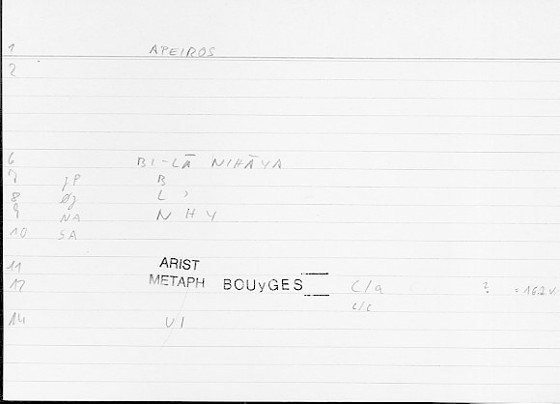 1 APEIROS
2
6 BI-LĀ NIHĀYA
7 B
8 L ʾ
9 NA N H Y
10 SA
11 ARIST
12 METAPH BOUyGES C/a ? = 162
c/c
14 UI